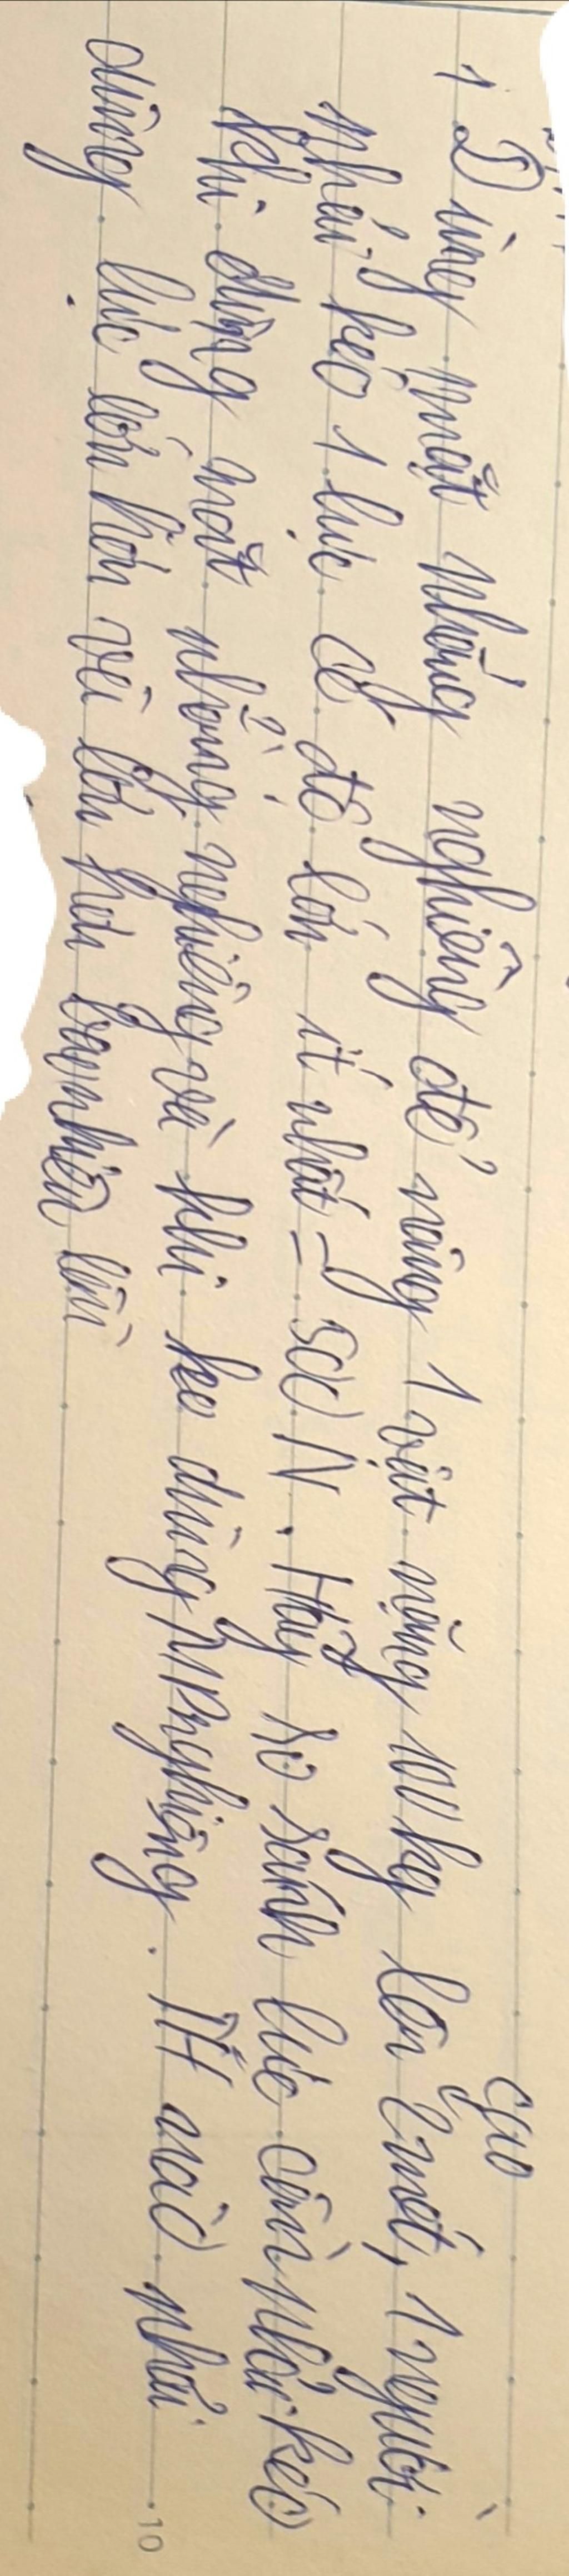 1 Dùng mặt phẳng nghiêng để nâng 1 vật nặng 100 kg lên cao 2 mét, 1 người
phải kéo 1 lực có độ lớn ít nhất = 500 N. Hãy so sánh lực cần phải kéo
khi dùng mặt phẳng nghiêng và khi ko dùng MPnghiêng. TH nào phải
dùng lực lớn hơn và lớn hơn bao nhiêu lần